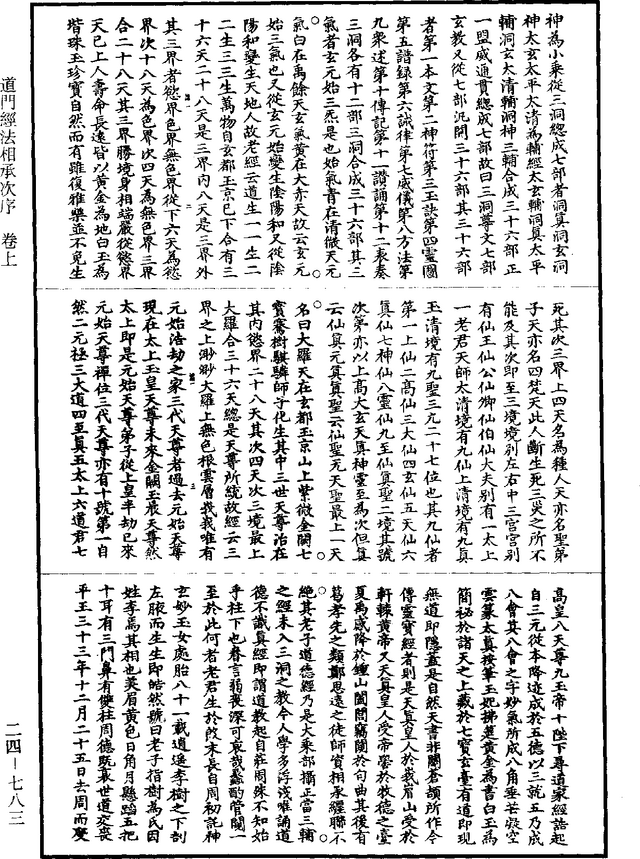 神為小乗從三洞總成七部者洞真洞玄洞
神太玄太平太清為輔經太玄輔洞真太平
輔洞玄太清輔洞神三輔合成三十六部正
一盟威通貫總成七部故曰三洞尊文七部
玄教又從七部汎開三十六部其三十六部
者第一本文第二神符第三玉訣第四靈圖
第五譜録第六誡律第七威儀第八方法第
九衆述第十傳記第十一讚誦第十二表奏
三洞各有十二部三洞合成三十六部其三
氣者玄元始三炁是也始氣青在清微天元
氣白在禹餘天玄氣黄在大赤天故云玄元
始三氣也又從玄元始變生陰陽和又從陰
陽和變生天地人故老經云道生一一生二
二生三三生萬物自玄都玉京已下合有三
十六天二十八天是三界内八天是三界外
其三界者慾界色界無色界從下六天為慾
界次十八天為色界次四天為無色界三界
合二十八天其三界勝境身相端嚴從慾界
天已上人壽命長遠皆以黄金為地白玉為
皆珠玉珍寶自然而有雖復雅樂並不免生
死其次三界上四天名為種人天亦名聖弟
子天亦名四梵天此人斷生死三災之所不
能及其次即至三境境别左右中三宫宫别
有仙王仙公仙卿仙伯仙大夫别有一太上
一老君天師太清境有九仙上清境有九真
玉清境有九聖三九二十七位也其九仙者
第一上仙二高仙三大仙四玄仙五天仙六
真仙七神仙八靈仙九至仙真聖二境其號
次第亦以上高大玄天真神靈至為次但真
云仙真元真真聖云仙聖无天聖最上一天
名曰大羅天在玄都玉京山上紫微金闕七
寳騫樹騏驎師子化生其中三世天尊治在
其内慾界二十八天其次四天次三境最上
大羅合三十六天總是天尊所統故經云三
界之上眇眇大羅上無色根雲層峩峩唯有
元始浩劫之家三代天尊者過去元始天尊
現在太上玉皇天尊未來金闕玉晨天尊然
太上即是元始天尊弟子從上皇半劫已來
元始天尊禪位三代天尊亦有十號第一自
然二元極三大道四至真五太上六道君七
高皇八天尊九玉帝十陛下尋道家經誥起
自三元從本降迹成於五德以三就五乃成
八會其八會之字妙氣所成八角垂芒凝空
雲篆太真按筆玉妃拂莚黄金為書白玉為
簡秘於諸天之上藏於七寳玄臺有道即現
無道即隠蓋是自然天書非關蒼頡所作今
傳靈寳經者則是天真皇人於峩眉山受於
軒轅黄帝又天真皇人受帝嚳於牧德之臺
夏禹感降於鍾山闔閭竊闚於句曲其後有
葛孝先之類鄭思遠之徒師資相承纆聮不
絶其老子道德經乃是大乗部攝正當三輔
之經未入三洞之教今人學多浮淺唯誦道
德不識真經即謂道教起自莊周殊不知始
乎柱下也眷言弱喪深可哀哉蠡酌管闚一
至於此何者老君生於殷末長自周初託神
玄妙玉女處胎八十一載逍遥李樹之下剖
左腋而生生即皓然號曰老子指樹為氏因
姓李焉其相也美眉黄色日角月懸蹈五把
十耳有三門鼻有雙柱周德既衰世道交喪
平王三十三年十二月二十五日去周而度
道門經法相承次序　卷上
二四—七八三